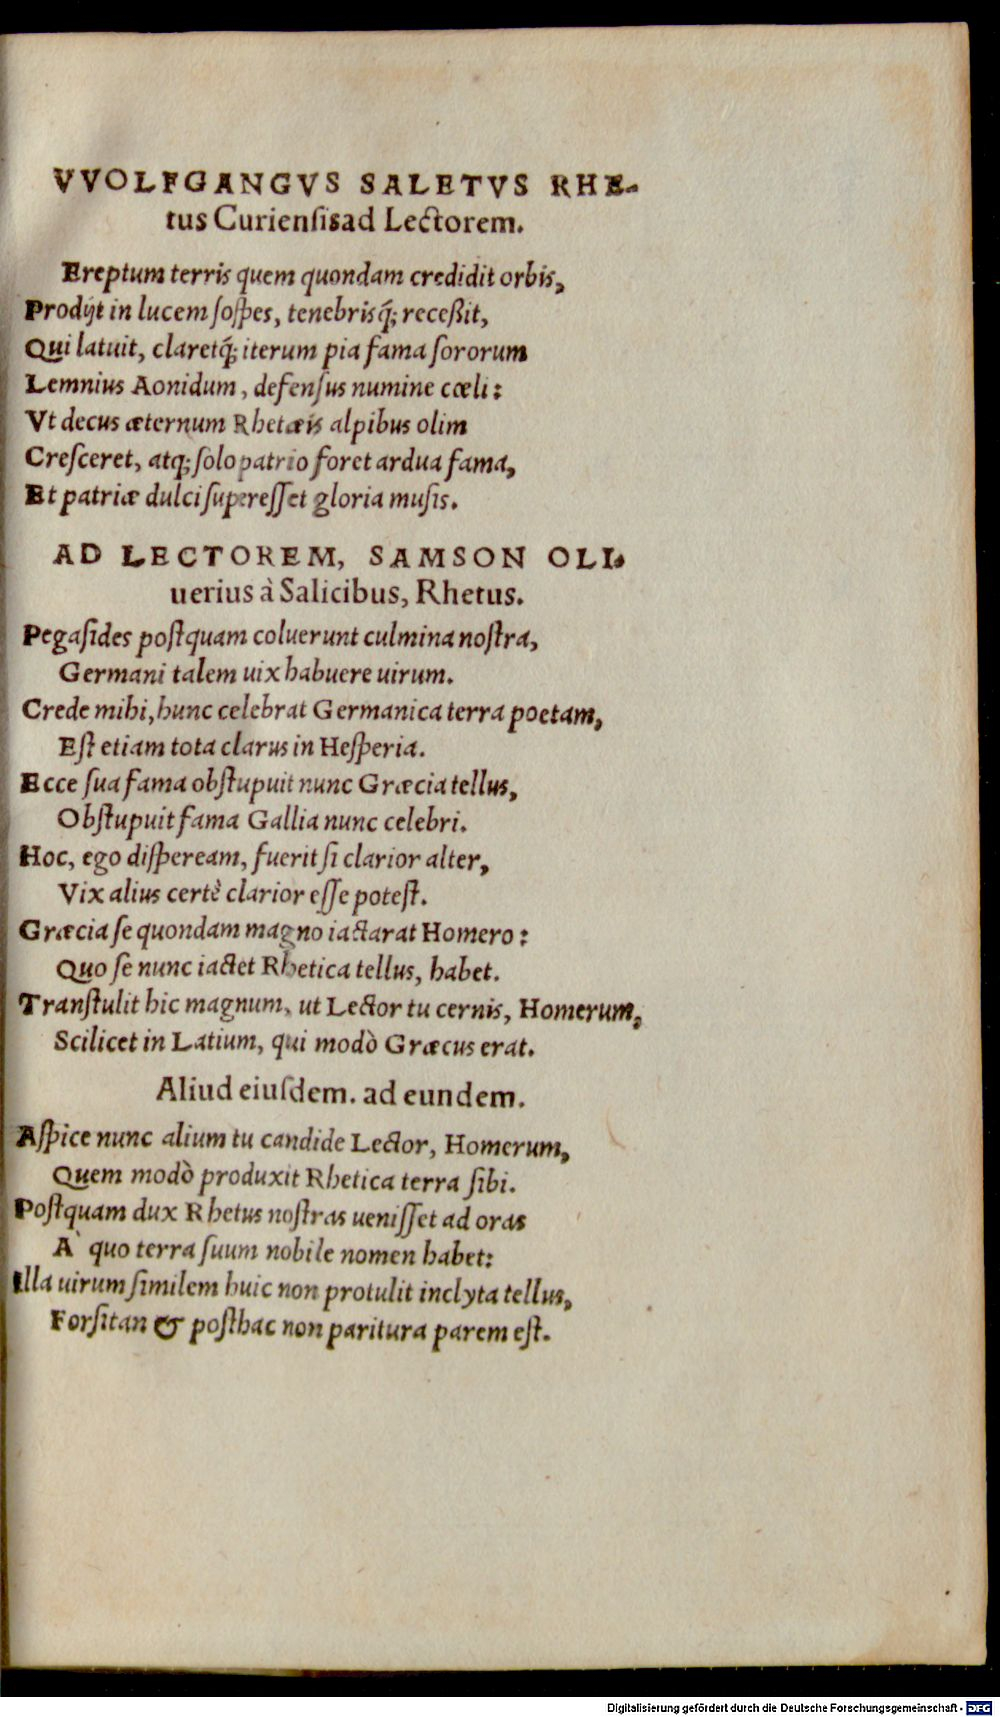 VVOLFGANGVS SALETVS RHE-
tus Curiensis ad Lectorem.
Ereptum terris quem quondam credidit orbis,
Prodijt in lucem ſoſpes, tenebrisq́; receßit,
Qui latuit, claretq́; iterum pia fama ſororum
Lemnius Aonidum, defenſus numine cœli:
Vt decus æternum Rhetæis alpibus olim
Creſceret, atq; ſolo patrio foret ardua fama,
Et patriæ dulci ſupereſſet gloria muſis.
AD LECTOREM, SAMSON OLI-
uerius à Salicibus, Rhetus.
Pegaſides poſtquam coluerunt culmina noſtra,
Germani talem uix habuere uirum.
Crede mihi, hunc celebrat Germanica terra poetam,
Eſt etiam tota clarus in Heſperia.
Ecce ſua fama obſtupuit nunc Græcia tellus,
Obſtupuit fama Gallia nunc celebri.
Hoc, ego diſpeream, fuerit ſi clarior alter,
Vix alius certè clarior eſſe poteſt.
Græcia ſe quondam magno iactarat Homero:
Quo ſe nunc iactet Rhetica tellus, habet.
Tranſtulit hic magnum, ut Lector tu cernis, Homerum,
Scilicet in Latium, qui modò Græcus erat.
Aliud eiuſdem. ad eundem.
Aſpice nunc alium tu candide Lector, Homerum,
Quem modò produxit Rhetica terra ſibi.
Poſtquam dux Rhetus noſtras ueniſſet ad oras
A` quo terra ſuum nobile nomen habet:
Illa uirum ſimilem huic non protulit inclyta tellus,
Forſitan & poſthac non paritura parem eſt.
Digitalisierung gefördert durch die Deutsche Forschungsgemeinschaft - DFG